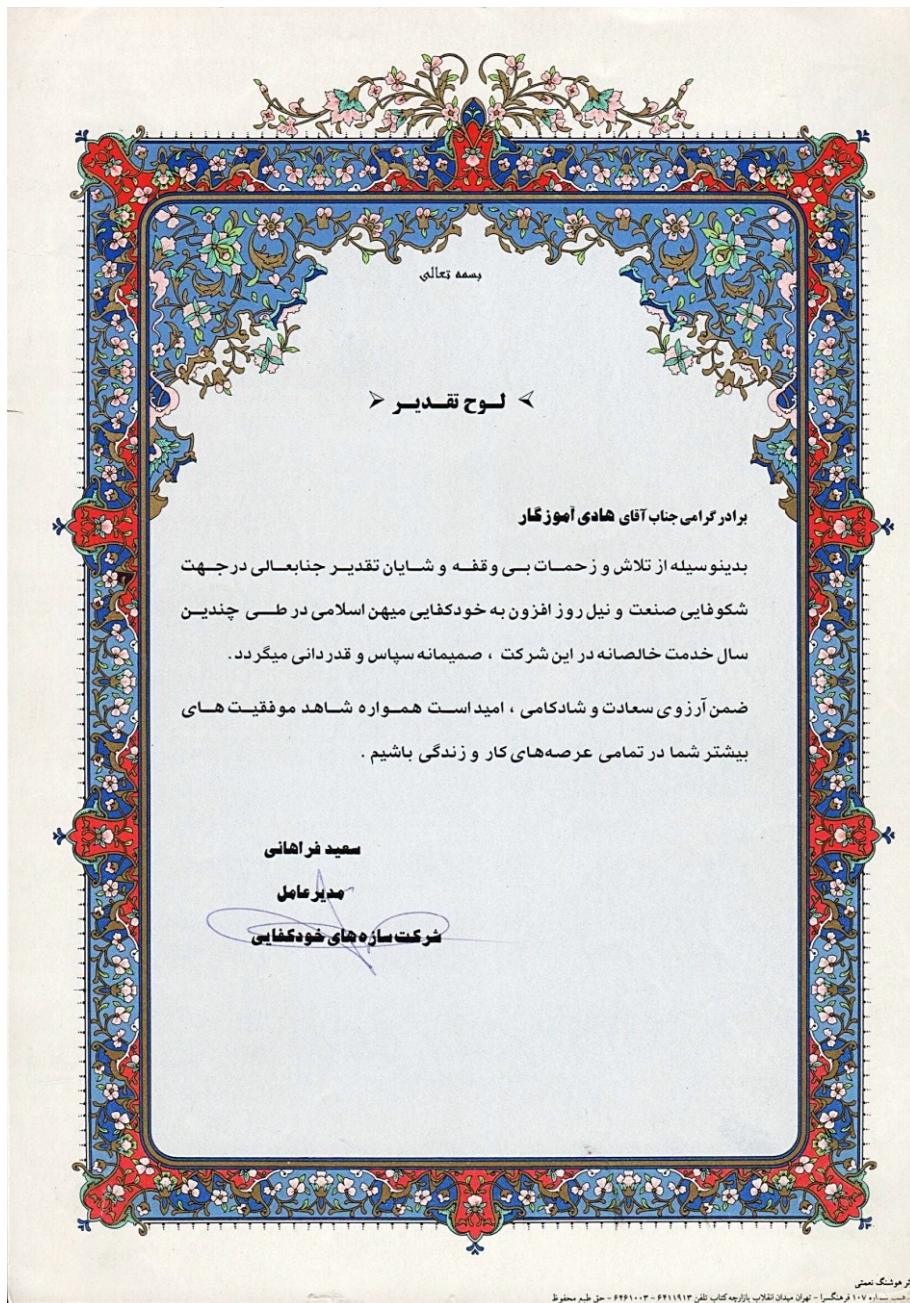 بسمه تعالی
لـوح تقـدیـر
برادر گرامی جناب آقای هادی آموزگار
بدینوسیله از تلاش و زحمـات بـی وقفـه و شـایان تقدیـر جنابعـالی در جـهت
شکوفایی صنعت و نیل روز افزون به خودکفایی میهن اسلامی در طـی چندیـن
سال خدمت خالصانه در این شرکت ، صمیمانه سپاس و قدردانی میگردد .
ضمن آرزوی سعادت و شادکامی ، امید اسـت همـواره شـاهد موفقیـت هـای
بیشتر شما در تمامی عرصه‌های کار و زندگی باشیم .
سعید فراهانی
مدیر عامل
شرکت سازه های خودکفایی
هوشنگ نعمتی
۱۰۷ فرهنگسرا - تهران میدان انقلاب بازارچه کتاب تلفن ۶۴۱۱۹۱۳ - ۶۴۶۱۰۰۳ - حق طبع محفوظ